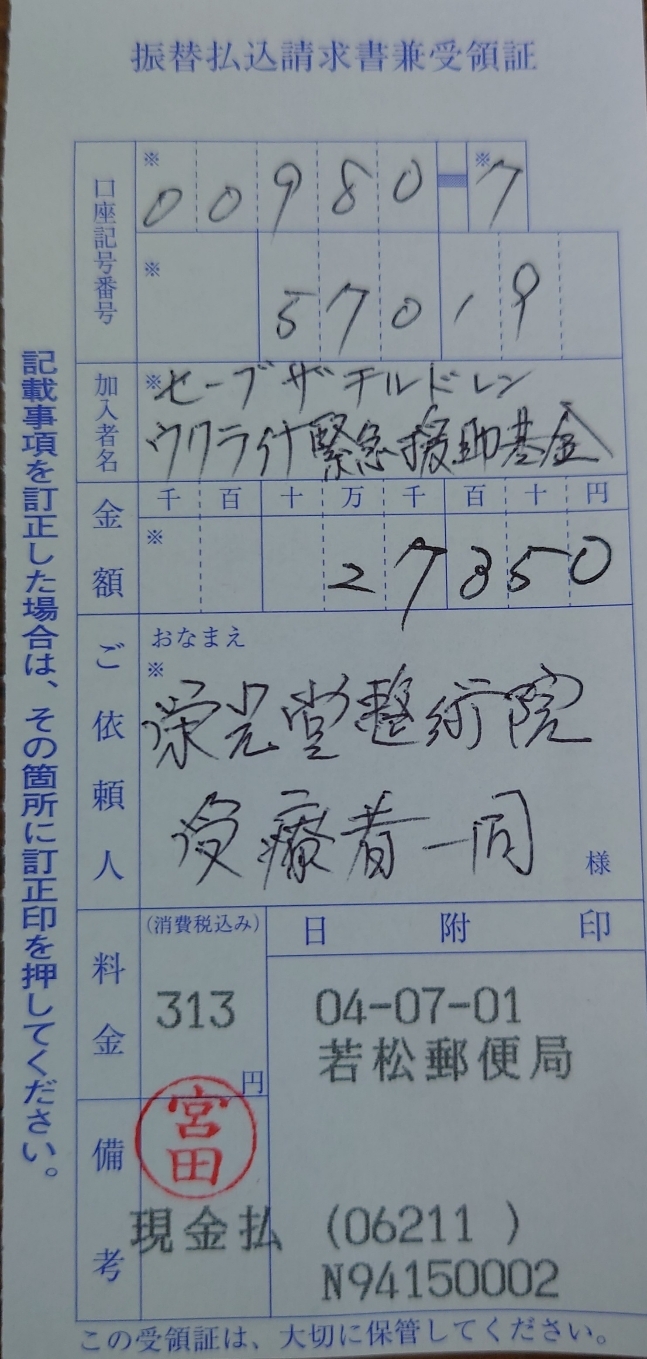 振替払込請求書兼受領証
口座記号番号
※ 00980-7
※ 57019
加入者名
※セーブザチルドレン
ウクライナ緊急援助基金
金額
千 百 十 万 千 百 十 円
※ 27850
ご依頼人
おなまえ
※
栄光堂整術院
受療者一同
様
料金
(消費税込み)
313
円
日附印
04-07-01
若松郵便局
備考
宮田
現金払 (06211 )
N94150002
記載事項を訂正した場合は、その箇所に訂正印を押してください。
この受領証は、大切に保管してください。